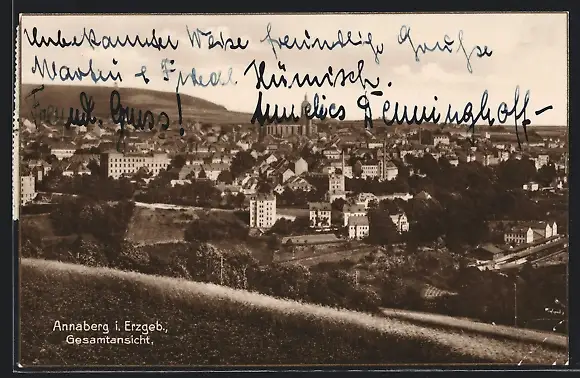 Unbekannter Weise freundliche Grüsse
Martin u. Friedel Hümisch.
Freundl. Gruss! Annelies Denninghoff –
Annaberg i. Erzgeb.,
Gesamtansicht.